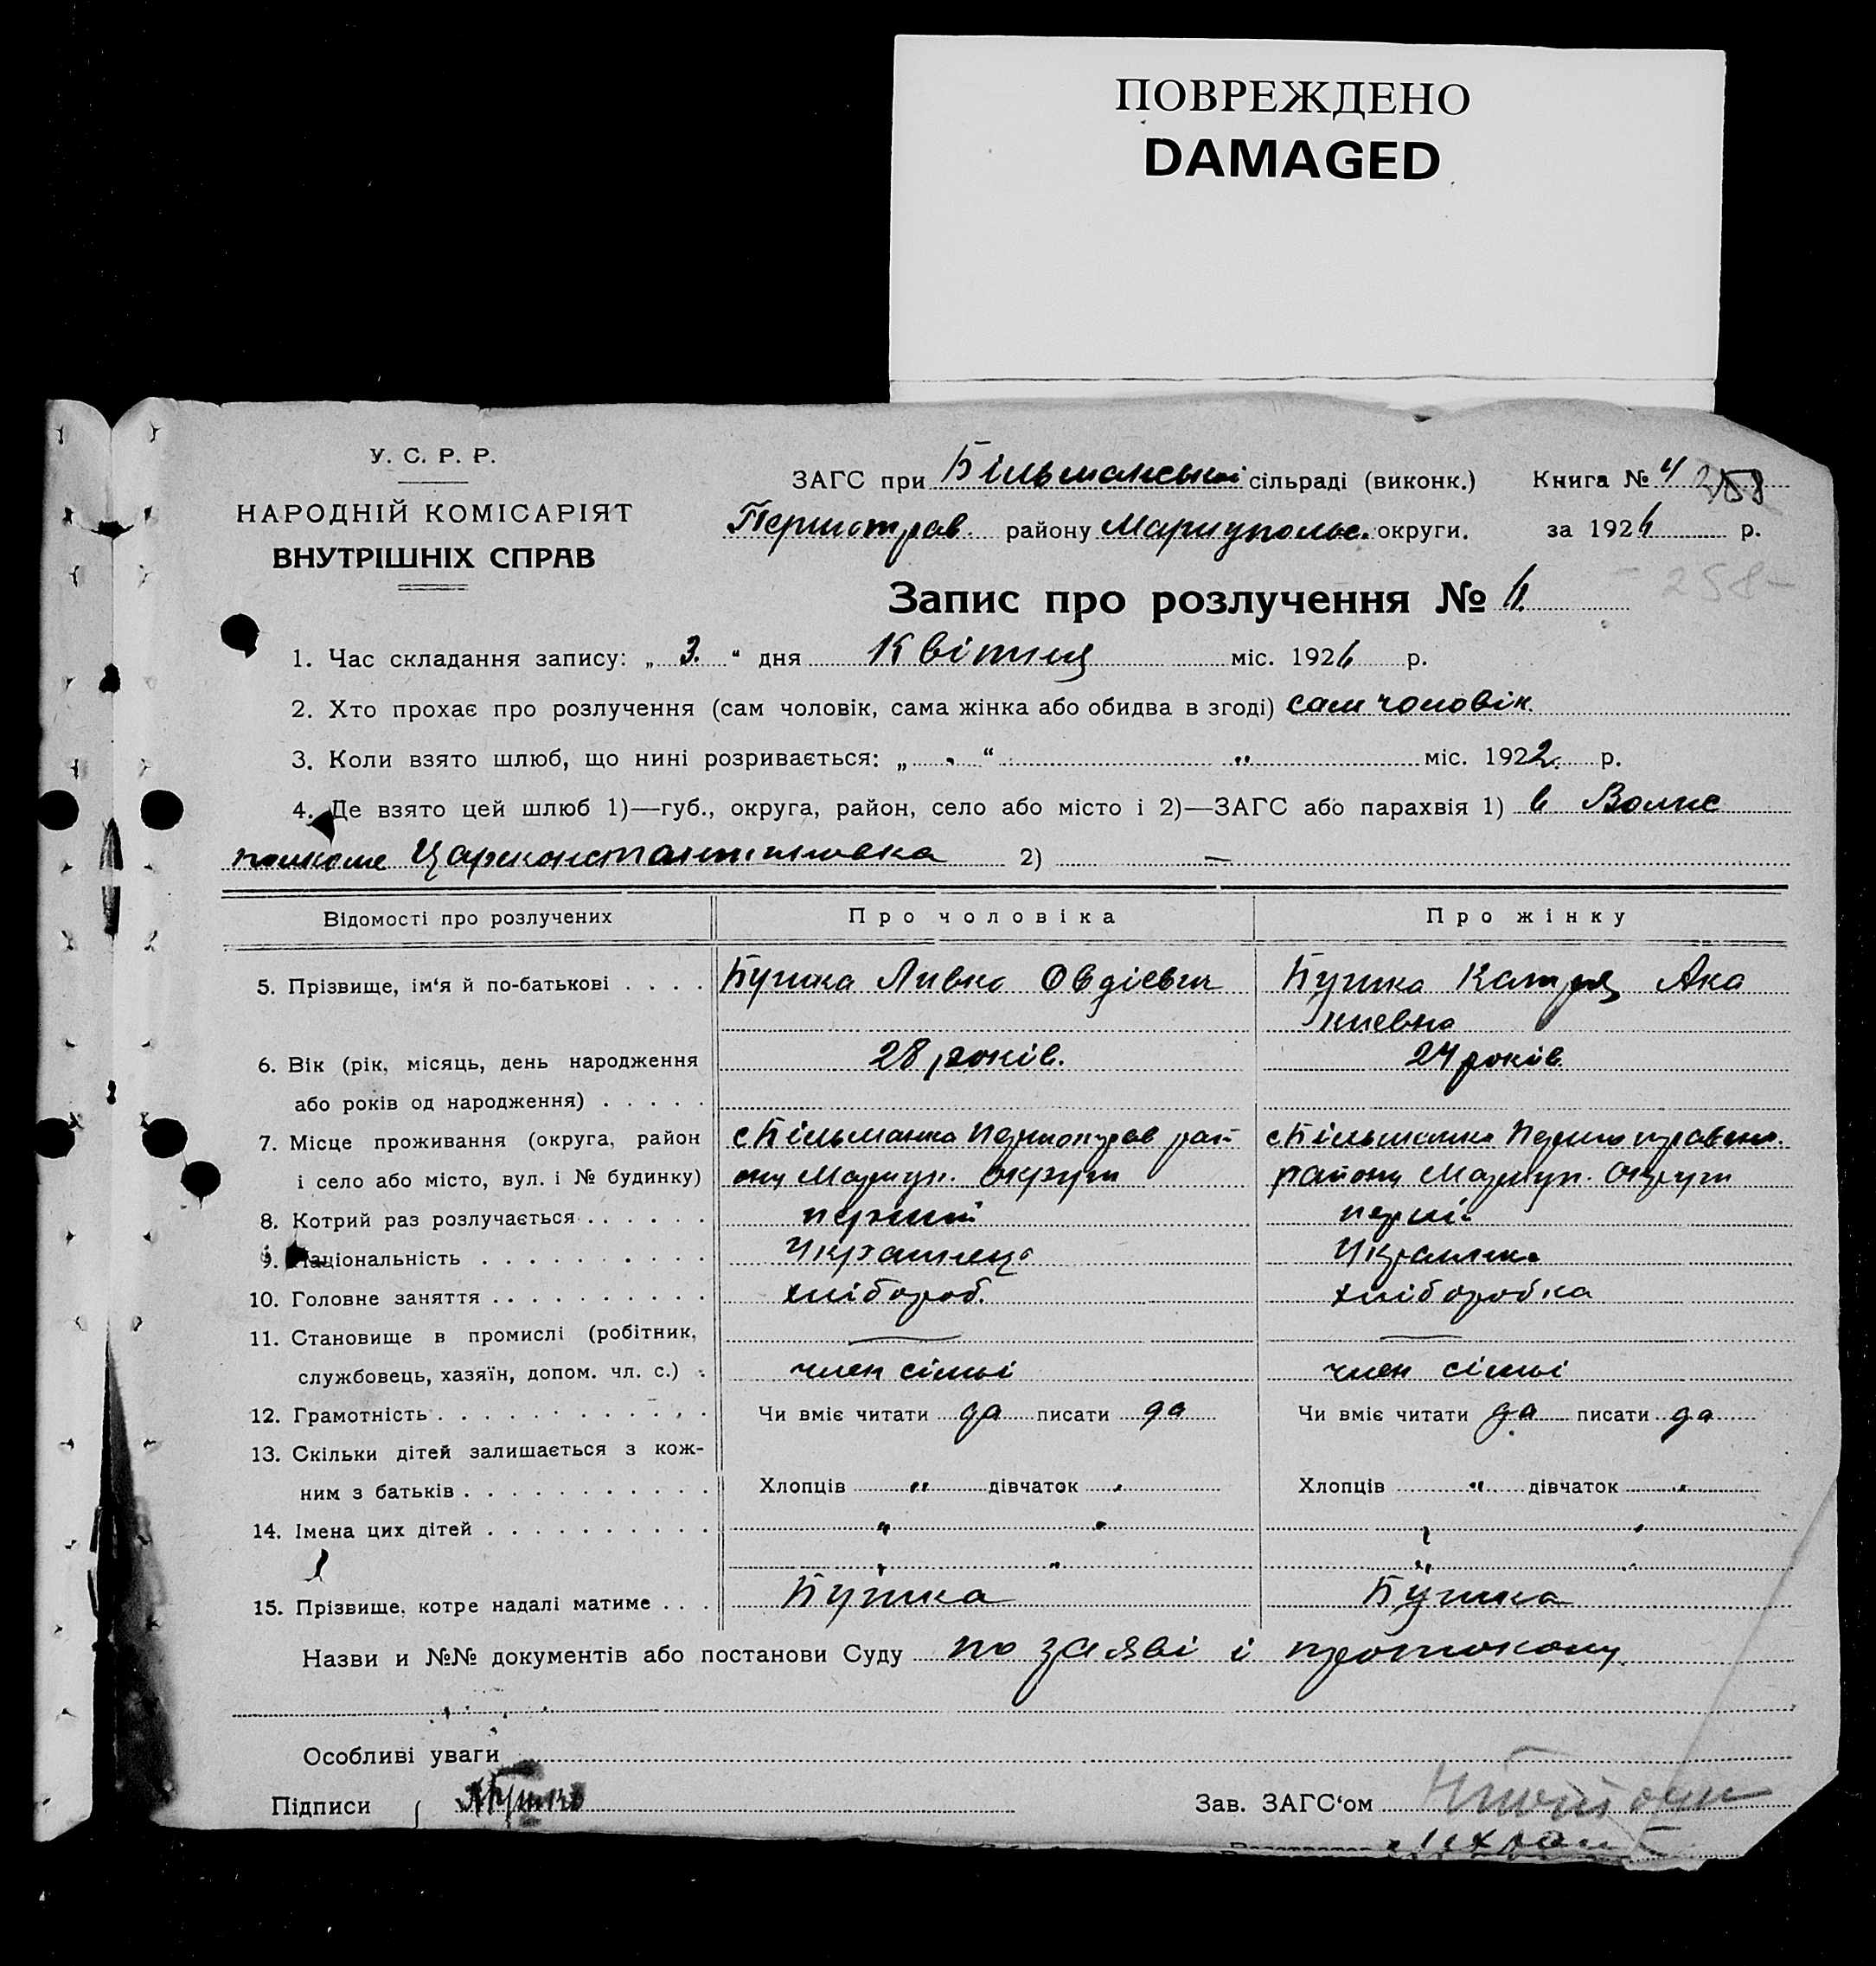 ПОВРЕЖДЕНО
DAMAGED
У. С. Р. Р.
НАРОДНІЙ КОМІСАРІЯТ
ВНУТРІШНІХ СПРАВ
ЗАГС при Більманській сільраді (виконк.) Книга № 4 258
Першотрав. району Мариупольс. округи. за 1926 р.
Запис про розлучення № 6. - 258 -
1. Час складання запису: „ 3. “ дня Квітня міс. 1926 р.
2. Хто прохає про розлучення (сам чоловік, сама жінка або обидва в згоді) сам чоловік.
3. Коли взято шлюб, що нині розривається: „ “ " міс. 1922. р.
4. Де взято цей шлюб 1)—губ., округа, район, село або місто і 2)—ЗАГС або парахвія 1) в Волис
полкоме Цареконстантиновка 2) —
Відомості про розлучених Про чоловіка Про жінку
5. Прізвище, ім‘я й по-батькові . . . . Бушка Овдієвич Бушка Катря Ака
киевна
6. Вік (рік, місяць, день народження 28 років. 24 років.
або років од народження) . . . . .
7. Місце проживання (округа, район с Більманка Першотрав рай с Більманка Першотравень.
і село або місто, вул. і № будинку) ону Мариуп. Округи району Мариуп. Округи
8. Котрий раз розлучається . . . . . . перший перши
9. Національність . . . . . . . . . . Украинець Украинка
10. Головне заняття . . . . . . . . . . хлібороб. хліборобка
11. Становище в промислі (робітник, — —
службовець, хазяїн, допом. чл. с.) . член сімьі член сімьі
12. Грамотність . . . . . . . . . . . . Чи вміє читати да писати да Чи вміє читати да писати да
13. Скільки дітей залишається з кож-
ним з батьків . . . . . . . . . . . Хлопців " дівчаток " Хлопців " дівчаток "
14. Імена цих дітей . . . . . . . . . . " " " "
" " " "
15. Прізвище, котре надалі матиме . . . Бушка Бушка
Назви и №№ документів або постанови Суду по заяві і протоколу.
Особливі уваги
Підписи Зав. ЗАГС‘ом